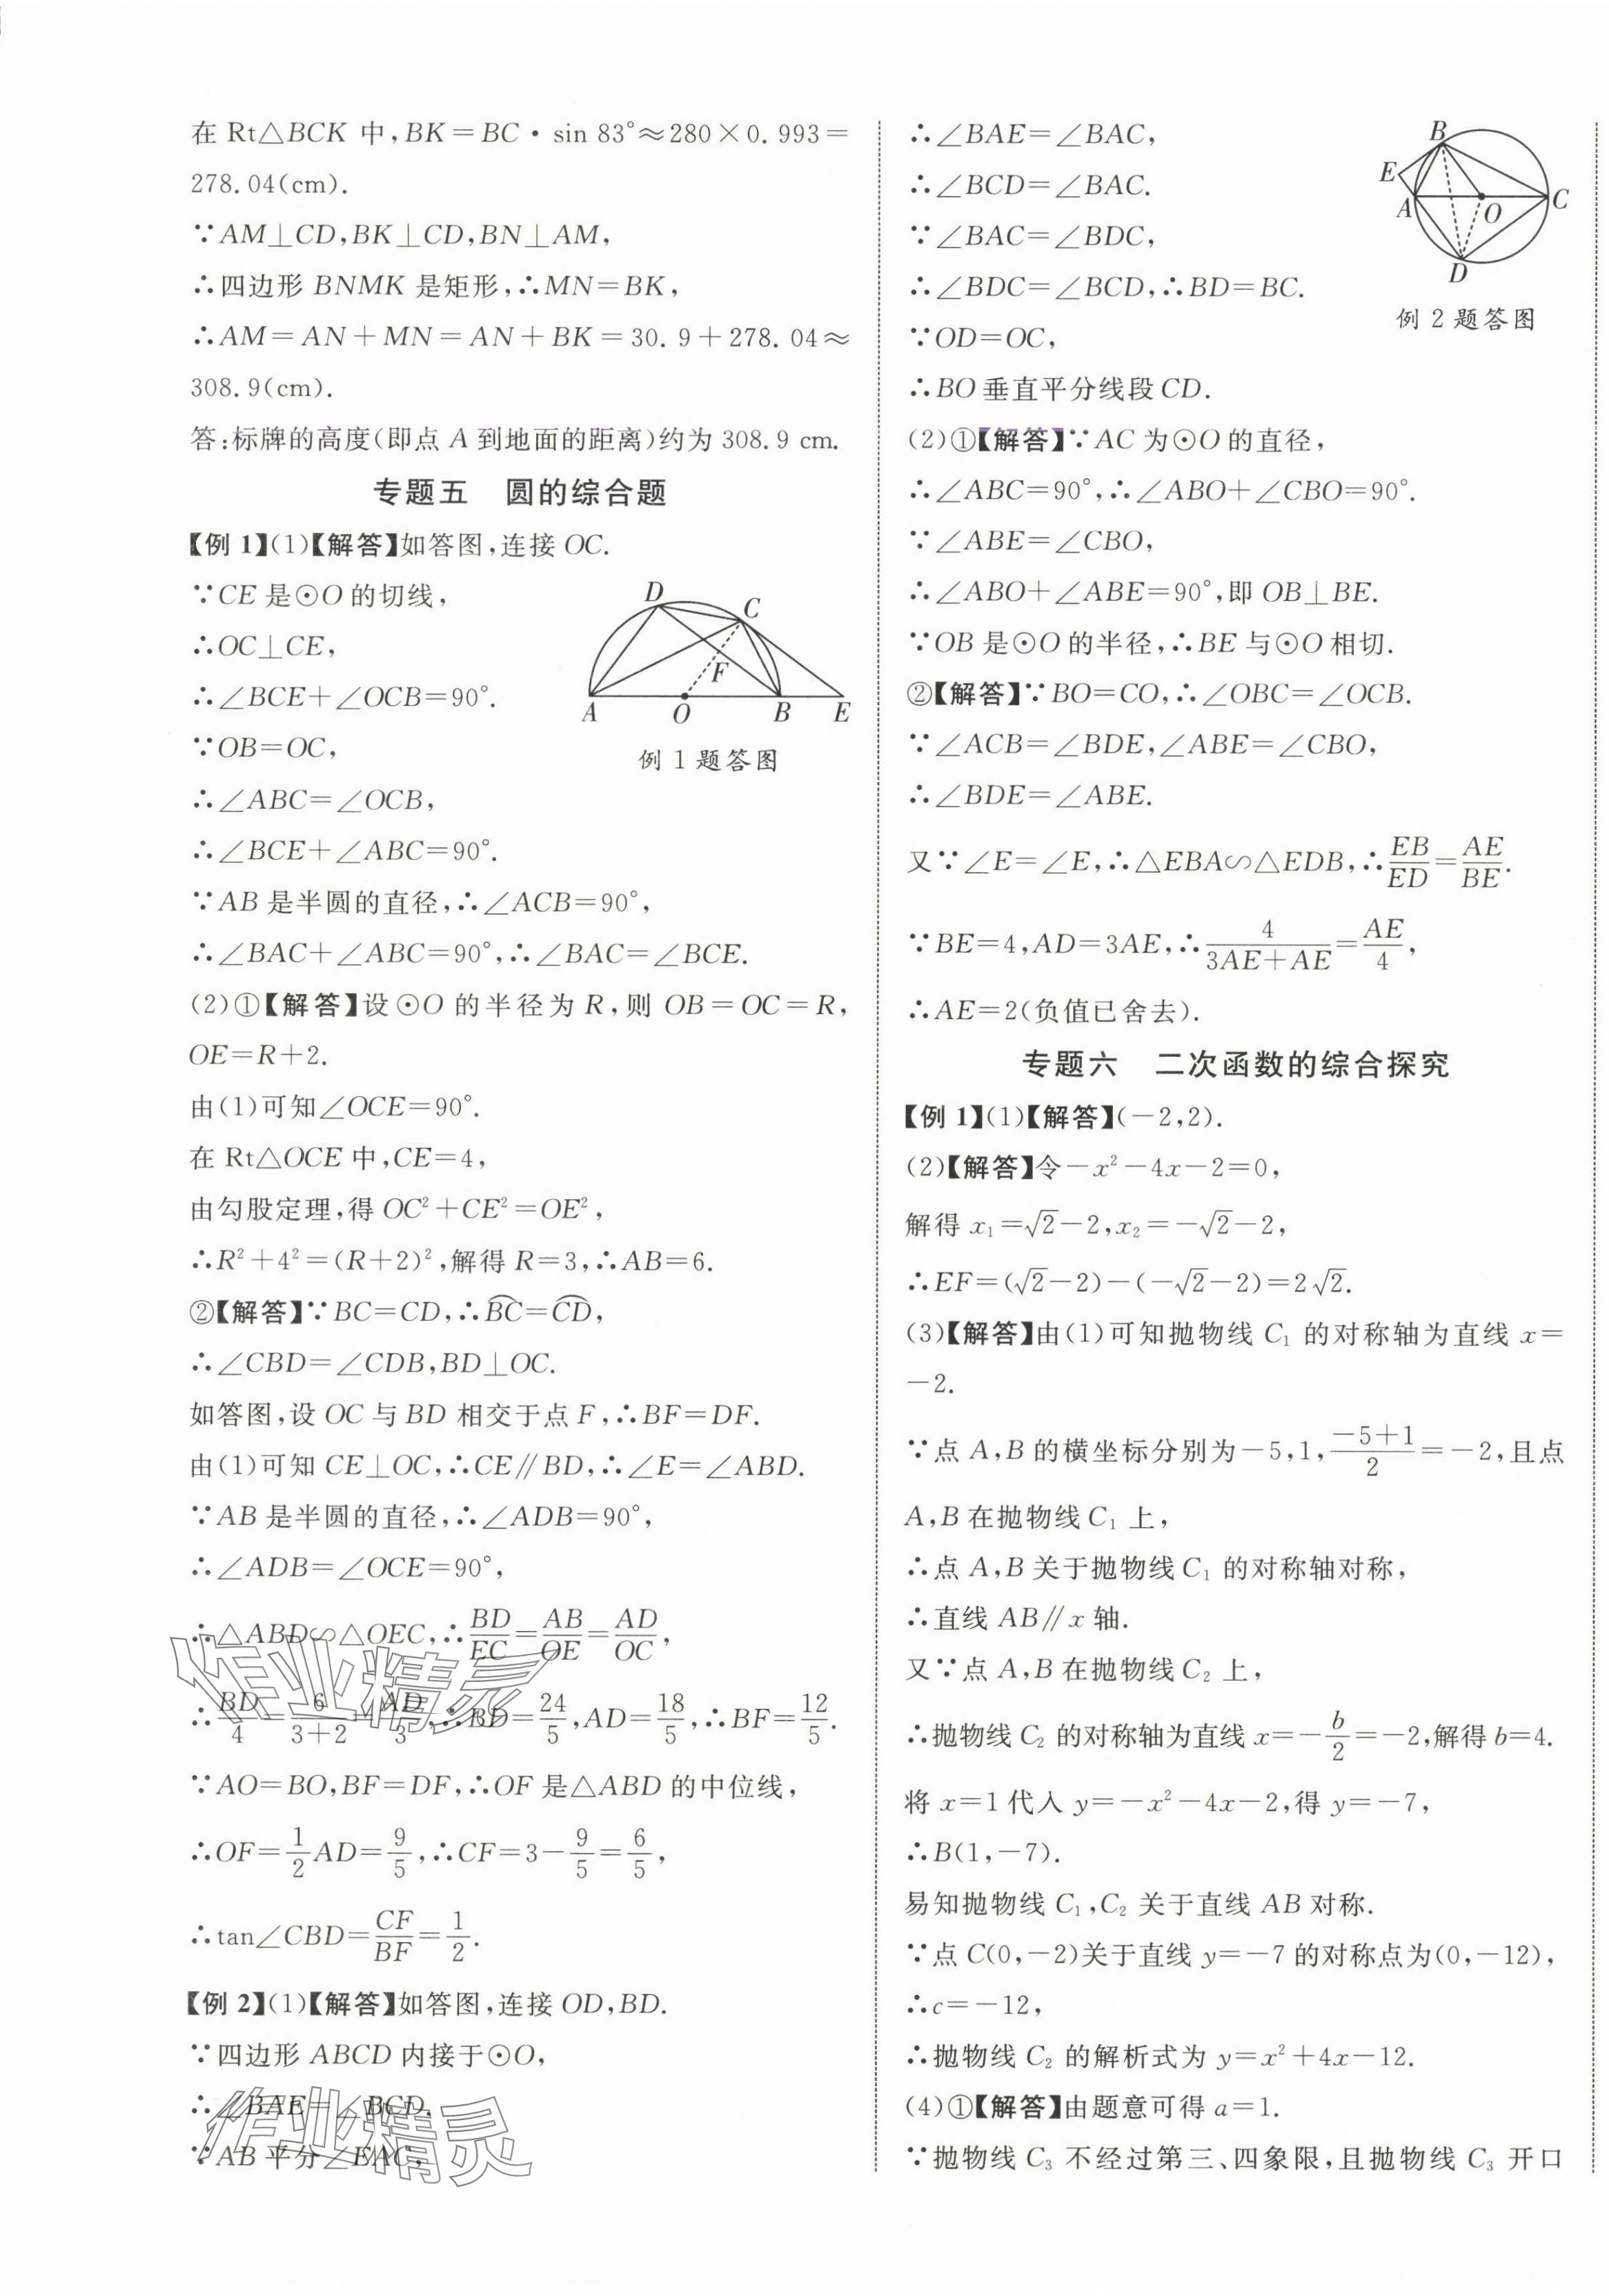 在 Rt△BCK 中,BK=BC·sin 83°≈280×0.993=
278.04(cm).
∵AM⊥CD,BK⊥CD,BN⊥AM,
∴四边形 BNMK 是矩形,∴MN=BK,
∴AM=AN+MN=AN+BK=30.9+278.04≈
308.9(cm).
答:标牌的高度(即点 A 到地面的距离)约为 308.9 cm.
专题五 圆的综合题
【例 1】(1)【解答】如答图,连接 OC.
∵CE 是⊙O 的切线,
∴OC⊥CE,
∴∠BCE+∠OCB=90°.
∵OB=OC,
∴∠ABC=∠OCB,
∴∠BCE+∠ABC=90°.
D
C
F
A
O
B
E
例 1 题答图
∵AB 是半圆的直径,∴∠ACB=90°,
∴∠BAC+∠ABC=90°,∴∠BAC=∠BCE.
(2)①【解答】设⊙O 的半径为 R,则 OB=OC=R,
OE=R+2.
由(1)可知∠OCE=90°.
在 Rt△OCE 中,CE=4,
由勾股定理,得 OC²+CE²=OE²,
∴R²+4²=(R+2)²,解得 R=3,∴AB=6.
②【解答】∵BC=CD,∴\overset{\frown}{BC}=\overset{\frown}{CD},
∴∠CBD=∠CDB,BD⊥OC.
如答图,设 OC 与 BD 相交于点 F,∴BF=DF.
由(1)可知 CE⊥OC,∴CE∥BD,∴∠E=∠ABD.
∵AB 是半圆的直径,∴∠ADB=90°,
∴∠ADB=∠OCE=90°,
∴△ABD∽△OEC,∴BD/EC=AB/OE=AD/OC,
∴BD/4=6/(3+2)=AD/3,∴BD=24/5,AD=18/5,∴BF=12/5.
∵AO=BO,BF=DF,∴OF 是△ABD 的中位线,
∴OF=1/2 AD=9/5,∴CF=3-9/5=6/5,
∴tan∠CBD=CF/BF=1/2.
【例 2】(1)【解答】如答图,连接 OD,BD.
∵四边形 ABCD 内接于⊙O,
∴∠BAE=∠BCD.
∵AB 平分∠EAC,
作业精灵
作业精灵
∴∠BAE=∠BAC,
∴∠BCD=∠BAC.
∵∠BAC=∠BDC,
∴∠BDC=∠BCD,∴BD=BC.
∵OD=OC,
∴BO 垂直平分线段 CD.
B
E
A
O
C
D
例 2 题答图
(2)①【解答】∵AC 为⊙O 的直径,
∴∠ABC=90°,∴∠ABO+∠CBO=90°.
∵∠ABE=∠CBO,
∴∠ABO+∠ABE=90°,即 OB⊥BE.
∵OB 是⊙O 的半径,∴BE 与⊙O 相切.
②【解答】∵BO=CO,∴∠OBC=∠OCB.
∵∠ACB=∠BDE,∠ABE=∠CBO,
∴∠BDE=∠ABE.
又∵∠E=∠E,∴△EBA∽△EDB,∴EB/ED=AE/BE.
∵BE=4,AD=3AE,∴4/(3AE+AE)=AE/4,
∴AE=2(负值已舍去).
专题六 二次函数的综合探究
【例 1】(1)【解答】(-2,2).
(2)【解答】令-x²-4x-2=0,
解得 x₁=√2-2,x₂=-√2-2,
∴EF=(√2-2)-(-√2-2)=2√2.
(3)【解答】由(1)可知抛物线 C₁ 的对称轴为直线 x=
-2.
∵点 A,B 的横坐标分别为-5,1,(-5+1)/2=-2,且点
A,B 在抛物线 C₁ 上,
∴点 A,B 关于抛物线 C₁ 的对称轴对称,
∴直线 AB∥x 轴.
又∵点 A,B 在抛物线 C₂ 上,
∴抛物线 C₂ 的对称轴为直线 x=-b/2=-2,解得 b=4.
将 x=1 代入 y=-x²-4x-2,得 y=-7,
∴B(1,-7).
易知抛物线 C₁,C₂ 关于直线 AB 对称.
∵点 C(0,-2)关于直线 y=-7 的对称点为(0,-12),
∴c=-12,
∴抛物线 C₂ 的解析式为 y=x²+4x-12.
(4)①【解答】由题意可得 a=1.
∵抛物线 C₃ 不经过第三、四象限,且抛物线 C₃ 开口